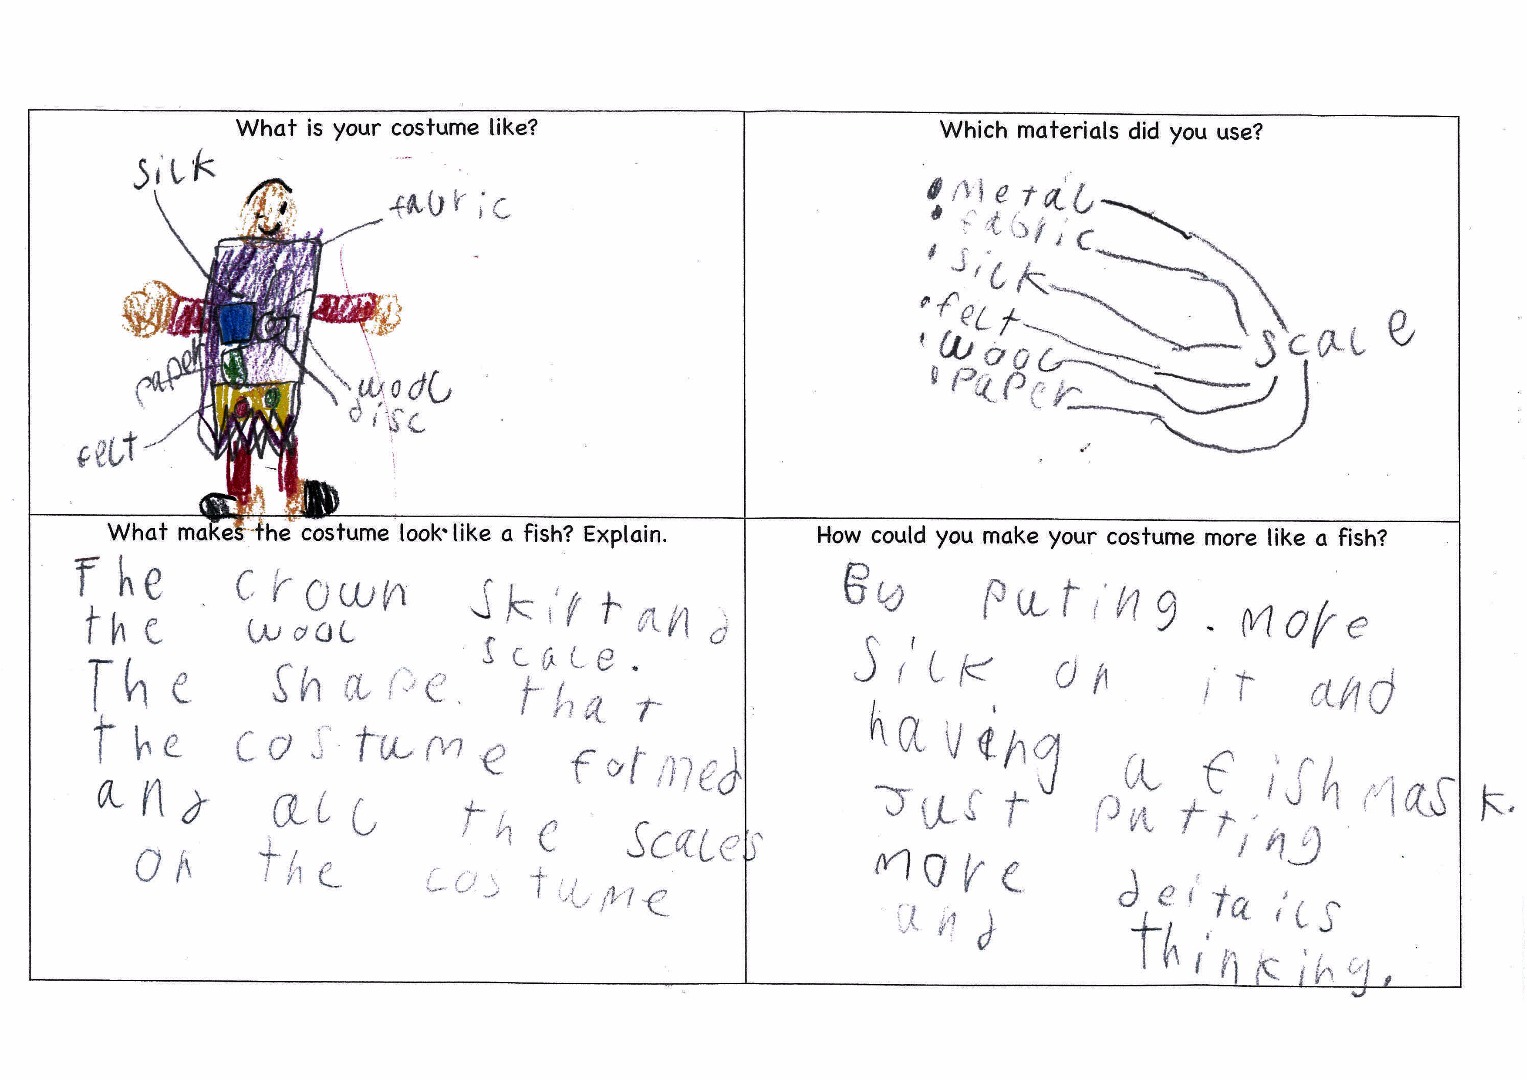 What is your costume like?
silk
fabric
paper
wool
disc
felt
Which materials did you use?
• Metal
• fabric
• silk
• felt
• wool
• Paper
scale
What makes the costume look like a fish? Explain.
The crown skirt and
the wool scale.
The shape. that
the costume formed
and all the scales
on the costume
How could you make your costume more like a fish?
By puting. more
silk on it and
having a fish mask.
Just putting
more deitails
and thinking.